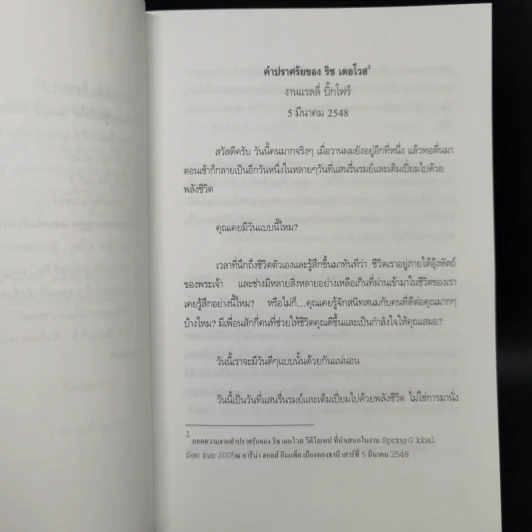 คำปราศรัยของ ริช เดอโวส¹
งานแรลลี่ บิ๊กโฟร์
5 มีนาคม 2548
สวัสดีครับ วันนี้คนมากจริงๆ เมื่อวานผมยังอยู่อีกที่หนึ่ง แล้วพอตื่นมา
ตอนเช้าก็กลายเป็นอีกวันหนึ่งในหลายๆวันที่แสนรื่นรมย์และเต็มเปี่ยมไปด้วย
พลังชีวิต
คุณเคยมีวันแบบนี้ไหม?
เวลาที่นึกถึงชีวิตตัวเองและรู้สึกขึ้นมาทันทีว่า ชีวิตเราอยู่ภายใต้อุ้งหัตถ์
ของพระเจ้า และช่างมีหลายสิ่งหลายอย่างเหลือเกินที่ผ่านเข้ามาในชีวิตของเรา
เคยรู้สึกอย่างนี้ไหม? หรือไม่ก็...คุณเคยรู้จักสนิทสนมกับคนที่ดีต่อคุณมากๆ
บ้างไหม? มีเพื่อนสักกี่คนที่ช่วยให้ชีวิตคุณดีขึ้นและเป็นกำลังใจให้คุณเสมอ?
วันนี้เราจะมีวันดีๆแบบนั้นด้วยกันแน่นอน
วันนี้เป็นวันที่แสนรื่นรมย์และเต็มเปี่ยมไปด้วยพลังชีวิต ไม่ใช่การมานั่ง
1
ถอดความจากคำปราศรัยของ ริช เดอโวส วีดีโอเทป ที่นำเสนอในงาน Spring G lobal
Sem inar 2005ณ อารีน่า ฮอลล์ อิมแพ็ค เมืองทองธานี เสาร์ที่ 5 มีนาคม 2548